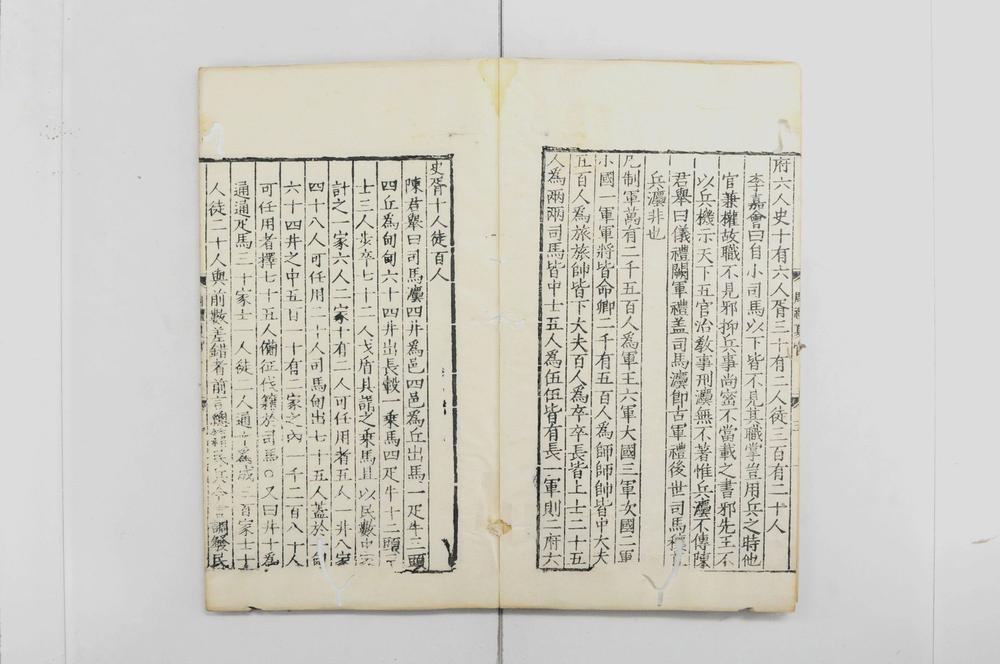 府六人史十有六人胥三十有二人徒三百有二十人
李嘉會曰自小司馬以下皆不見其職掌豈用兵之時他
官兼權故職不見邪抑兵事尚密不當載之書邪先王不
以兵機示天下五官治教事刑灋無不著惟兵灋不傳陳
君舉曰儀禮闕軍禮盖司馬灋即古軍禮後世司馬穰
兵灋非也
凡制軍萬有二千五百人為軍王六軍大國三軍次國二軍
小國一軍軍將皆命卿二千有五百人為師師帥皆中大夫
五百人為旅旅帥皆下大夫百人為卒卒長皆上士二十五
人為兩兩司馬皆中士五人為伍伍皆有長一軍則二府六
史胥十人徒百人
陳君舉曰司馬灋四井為邑四邑為丘出馬一疋牛三頭
四丘為甸甸六十四井出長轂一乗馬四疋牛十二頭
士三人步卒七十二人戈盾具謂之乗馬且以民數中
計之一家六人二家十有二人可任用者五人一井八家
四十八人可任用二十人司馬甸出七十五人蓋於
六十四井之中五百一十有二家之內一千二百八十人
可任用者擇七十五人備征伐籍於司馬○又曰井十為
通通疋馬三十家士一人徒二人通十為成三百家士十
人徒二十人與前數差錯者前言緫籍民兵今言調發民